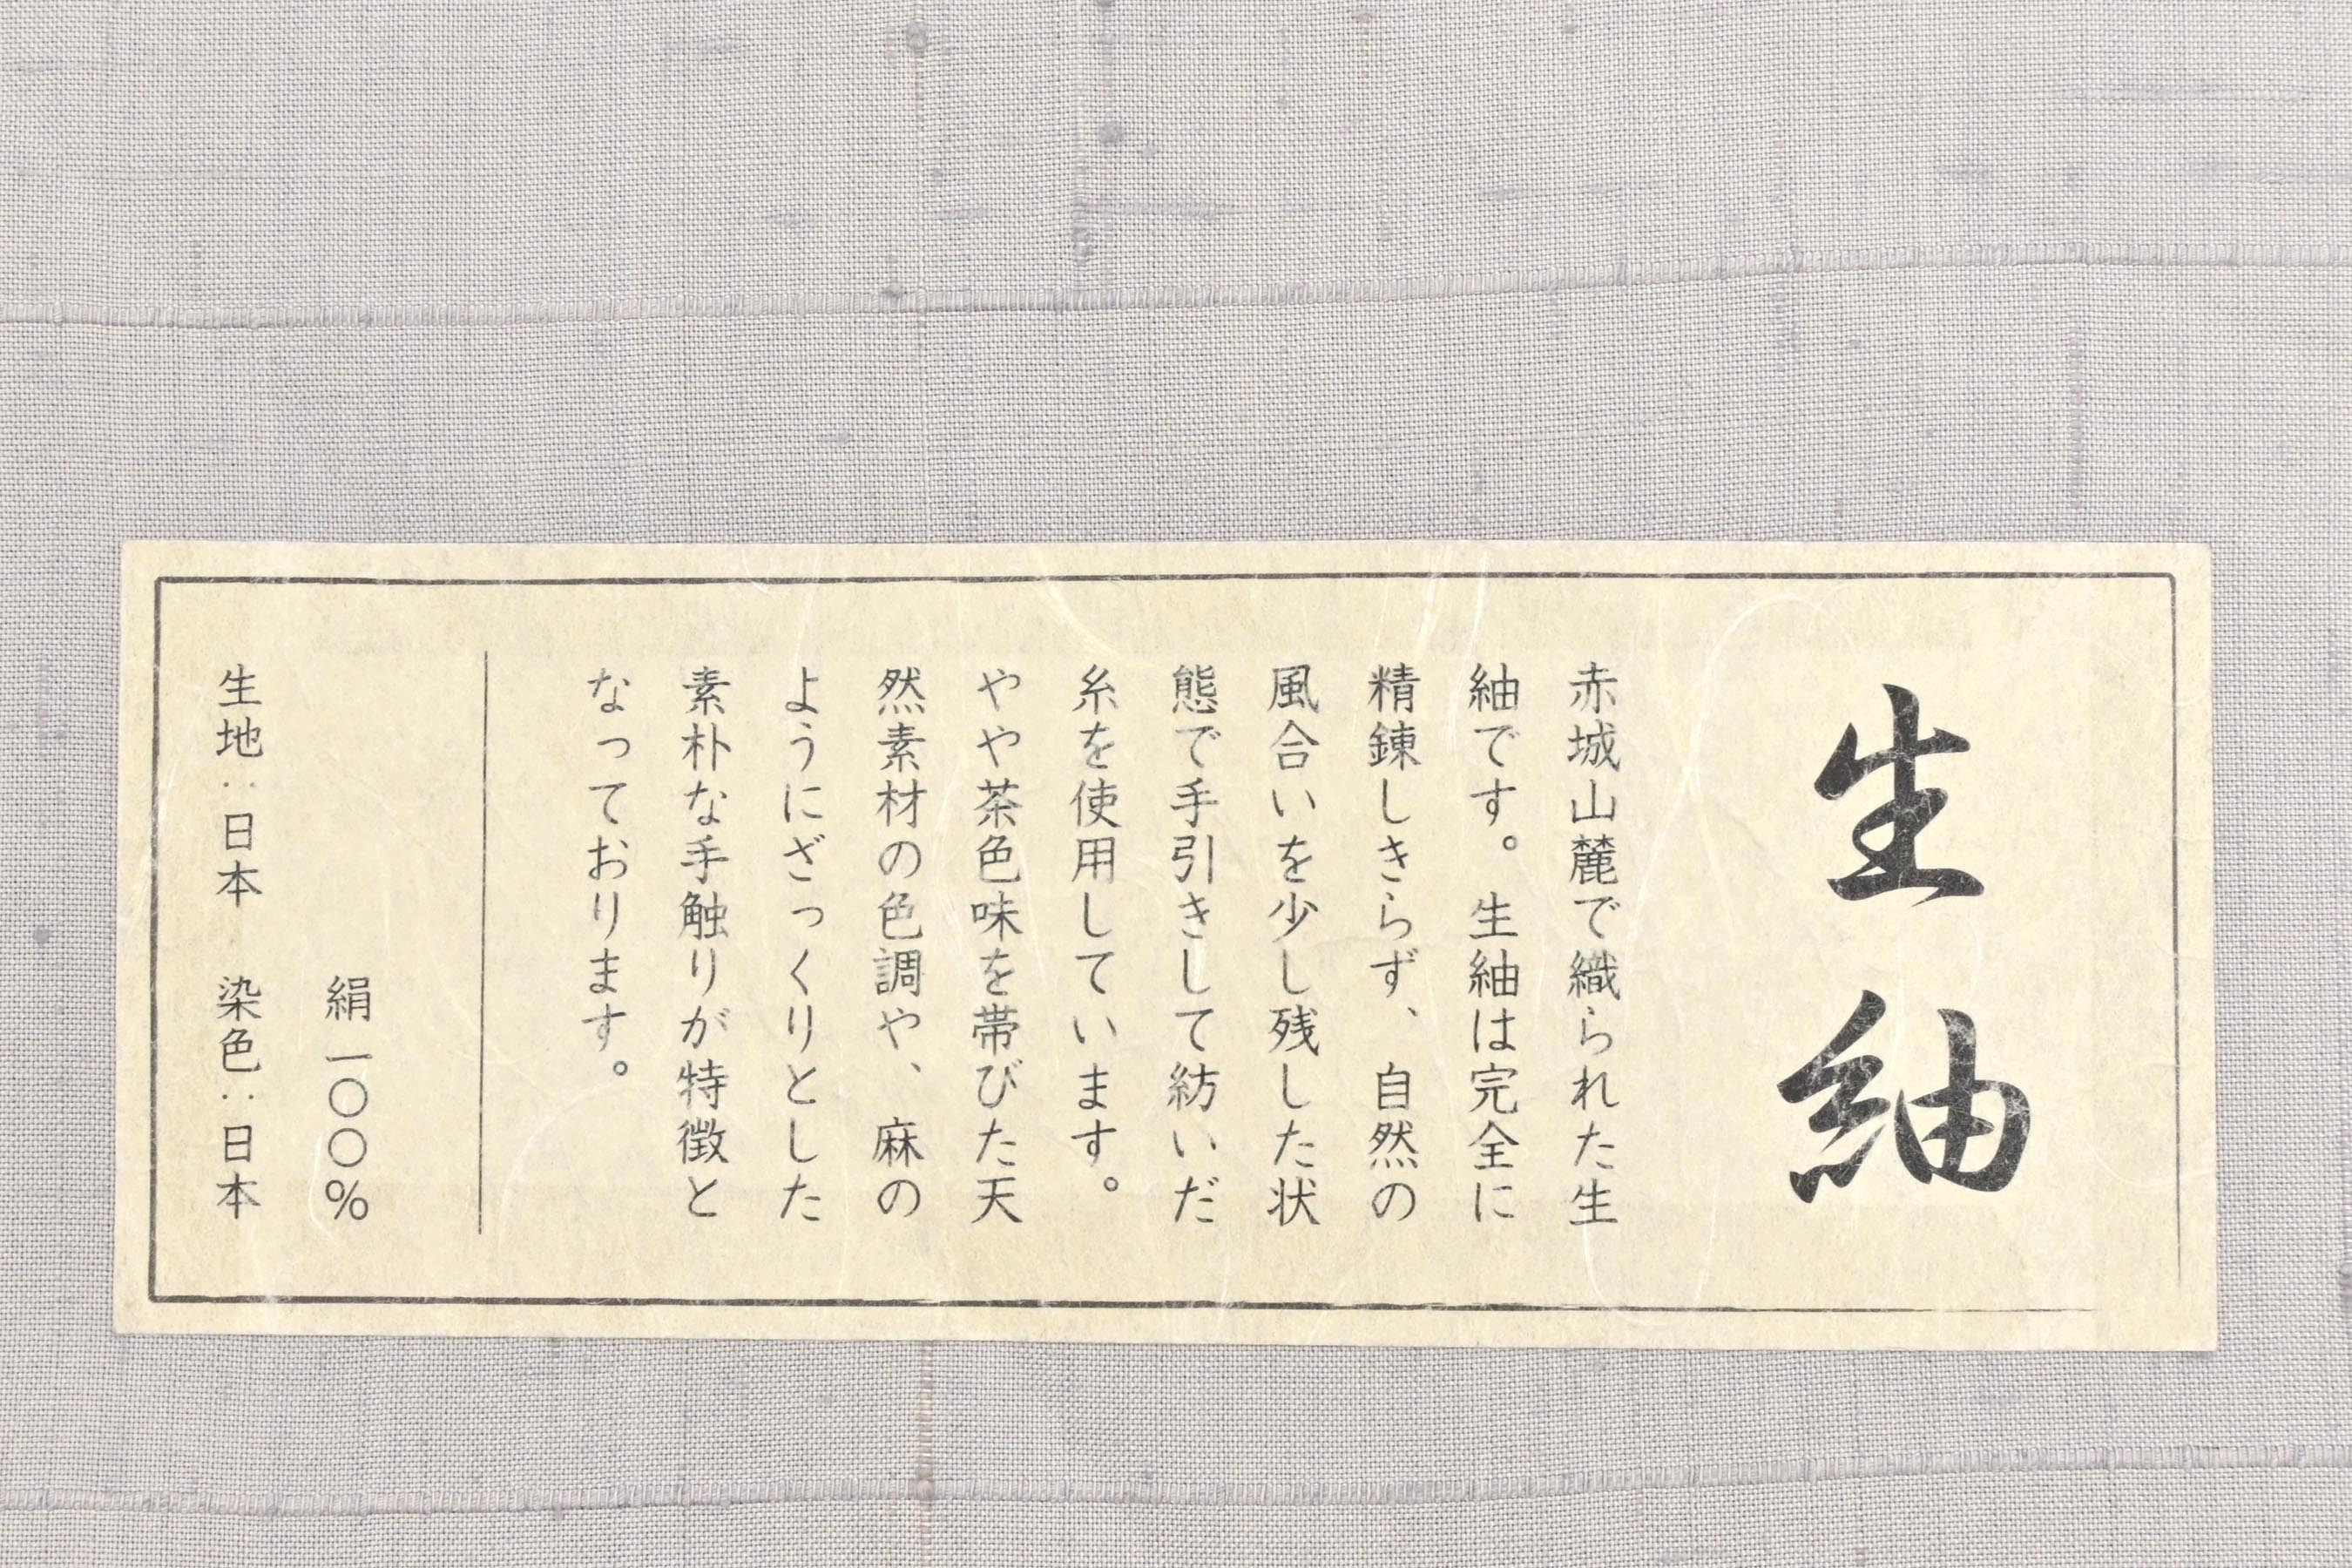 生紬
赤城山麓で織られた生
紬です。生紬は完全に
精錬しきらず、自然の
風合いを少し残した状
態で手引きして紡いだ
糸を使用しています。
やや茶色味を帯びた天
然素材の色調や、麻の
ようにざっくりとした
素朴な手触りが特徴と
なっております。
絹一〇〇%
生地:日本 染色:日本